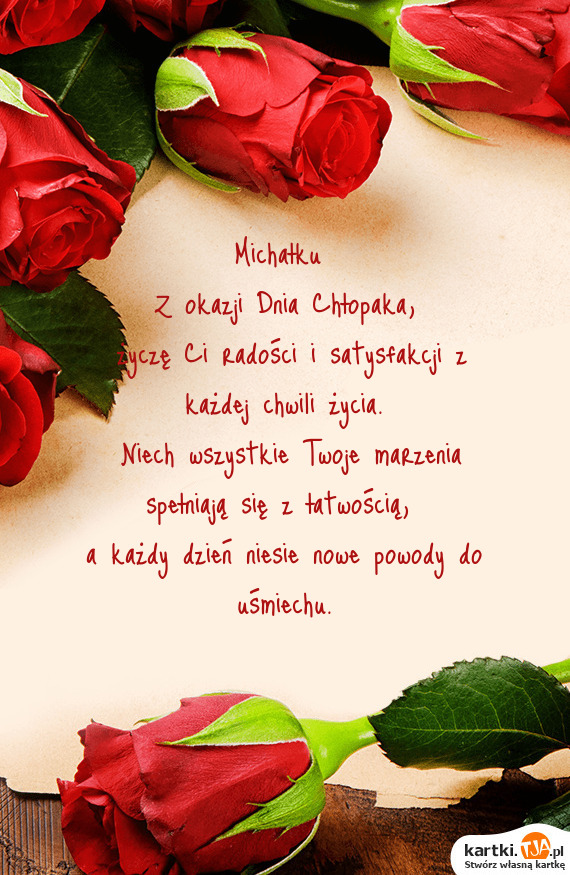 Michałku
Z okazji Dnia Chłopaka,
życzę Ci radości i satysfakcji z
każdej chwili życia.
Niech wszystkie Twoje marzenia
spełniają się z łatwością,
a każdy dzień niesie nowe powody do
uśmiechu.
kartki.TJA.pl
Stwórz własną kartkę